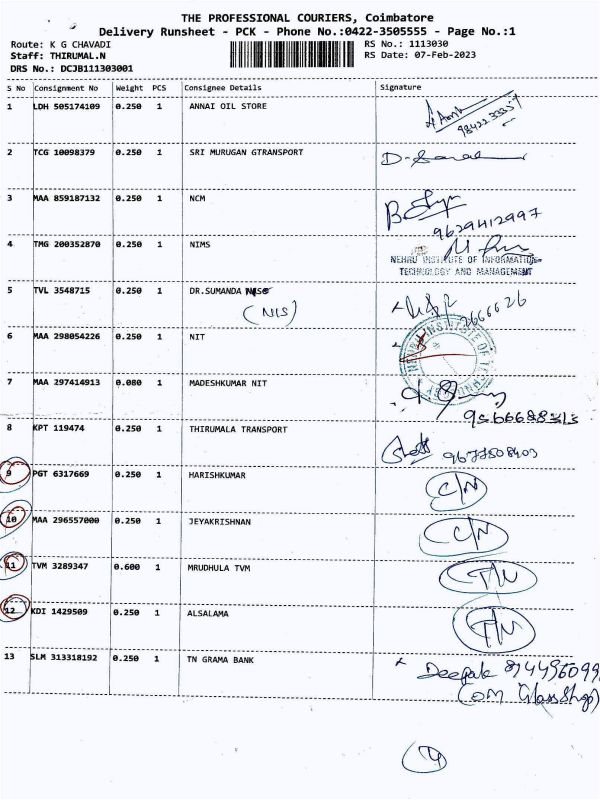 THE PROFESSIONAL COURIERS, Coimbatore
Delivery Runsheet - PCK - Phone No.:0422-3505555 - Page No.:1
Route: K G CHAVADI RS No.: 1113030
Staff: THIRUMAL.N RS Date: 07-Feb-2023
DRS No.: DCJB111303001
S No Consignment No Weight PCS Consignee Details Signature
1 LDH 505174109 0.250 1 ANNAI OIL STORE
2 TCG 10098379 0.250 1 SRI MURUGAN GTRANSPORT
3 MAA 859187132 0.250 1 NCM
9629412997
4 TMG 200352870 0.250 1 NIMS
NEHRU INSTITUTE OF INFORMATION
TECHNOLOGY AND MANAGEMENT
5 TVL 3548715 0.250 1 DR.SUMANDA
(NIS) 2666626
6 MAA 298054226 0.250 1 NIT
NEHRU INSTITUTE OF TECHNOLOGY
7 MAA 297414913 0.080 1 MADESHKUMAR NIT
8 KPT 119474 0.250 1 THIRUMALA TRANSPORT
9677508403
9 PGT 6317669 0.250 1 HARISHKUMAR C/N
10 MAA 296557000 0.250 1 JEYAKRISHNAN C/N
11 TVM 3289347 0.600 1 MRUDHULA TVM T/N
12 KDI 1429509 0.250 1 ALSALAMA T/N
13 SLM 313318192 0.250 1 TN GRAMA BANK Deepak
(OM Glass Shop)